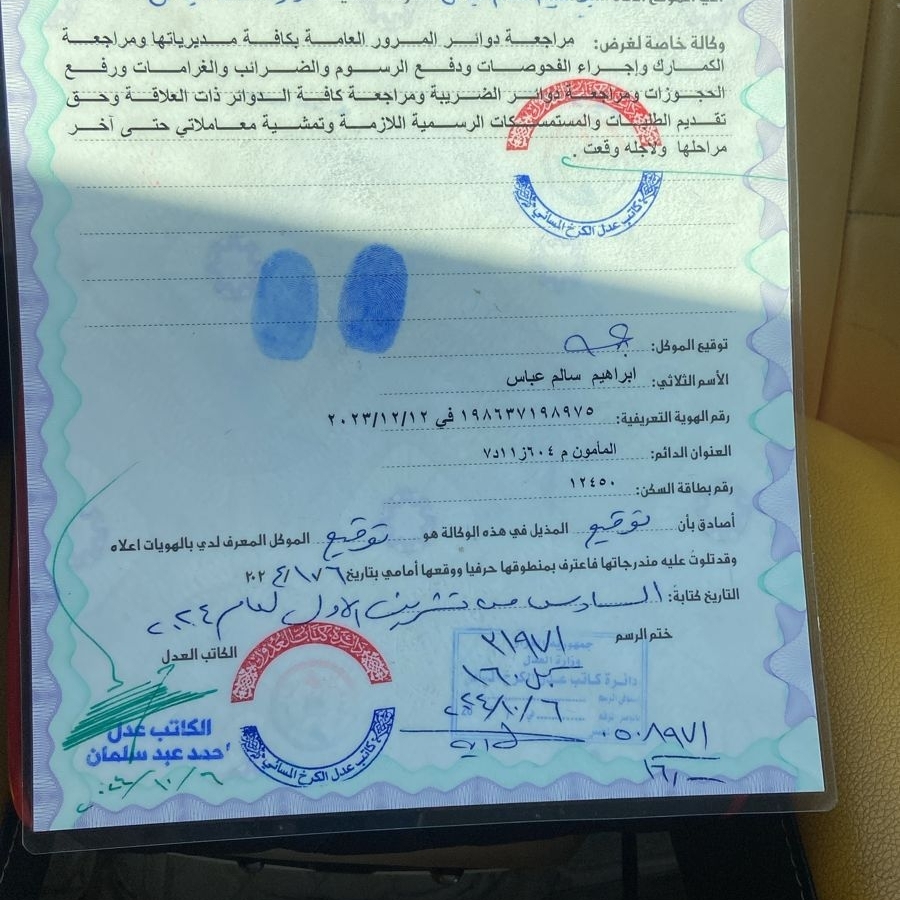 وكالة خاصة لغرض: مراجعة دوائر المرور العامة بكافة مديرياتها ومراجعة
الكمارك وإجراء الفحوصات ودفع الرسوم والضرائب والغرامات ورفع
الحجوزات ومراجعة دوائر الضريبة ومراجعة كافة الدوائر ذات العلاقة وحق
تقديم الطلبات والمستمسكات الرسمية اللازمة وتمشية معاملاتي حتى آخر
مراحلها ولأجله وقعت .
كاتب عدل الكرخ المسائي
توقيع الموكل:
الأسم الثلاثي: ابراهيم سالم عباس
رقم الهوية التعريفية: ١٩٨٦٣٧١٩٨٩٧٥ في ٢٠٢٣/١٢/١٢
العنوان الدائم: المأمون م ٦٠٤ ز ١١ د٧
رقم بطاقة السكن: ١٢٤٥٠
أصادق بأن توقيع المذيل في هذه الوكالة هو توقيع الموكل المعرف لدي بالهويات اعلاه
وقدتلوت عليه مندرجاتها فاعترف بمنطوقها حرفيا ووقعها أمامي بتاريخ
التاريخ كتابة: السادس من تشرين الاول لعام ٢٠٢٤
ختم الرسم
الكاتب العدل
دائرة كاتب عدل
وزارة العدل
كاتب عدل الكرخ المسائي
٢١٩٧١
٢٠٢٤/١٠/٦
٠٥٠٨٩٧١
الكاتب عدل
أحمد عبد سلمان
٢٠٢٤/١٠/٦